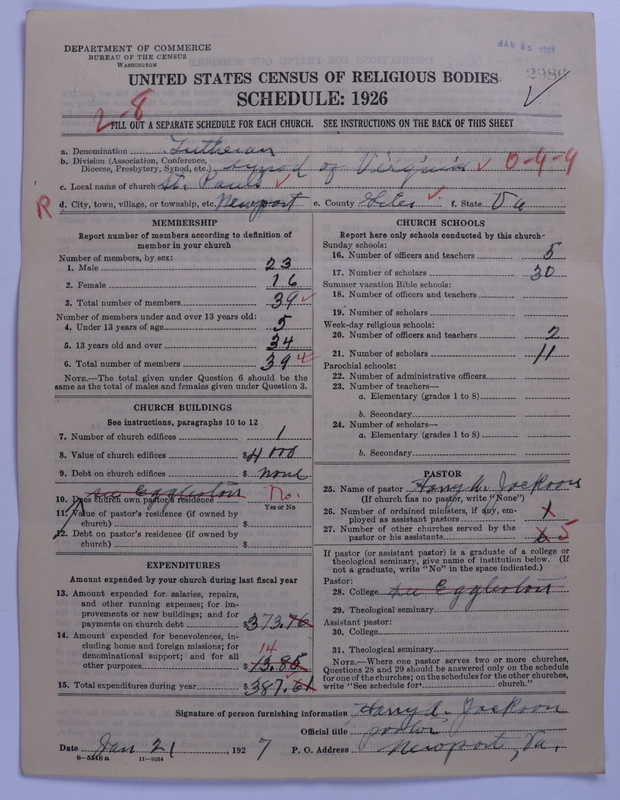 DEPARTMENT OF COMMERCE
BUREAU OF THE CENSUS
WASHINGTON
UNITED STATES CENSUS OF RELIGIOUS BODIES
SCHEDULE: 1926
2-8
FILL OUT A SEPARATE SCHEDULE FOR EACH CHURCH. SEE INSTRUCTIONS ON THE BACK OF THIS SHEET
a. Denomination Lutheran
b. Division (Association, Conference, Diocese, Presbytery, Synod, etc.) Synod of Virginia 0-4-4
c. Local name of church St. Pauls
R d. City, town, village, or township, etc. Newport e. County Giles f. State Va
MEMBERSHIP
Report number of members according to definition of
member in your church
Number of members, by sex:
1. Male 23
2. Female 16
3. Total number of members 39
Number of members under and over 13 years old:
4. Under 13 years of age 5
5. 13 years old and over 34
6. Total number of members 39
NOTE.—The total given under Question 6 should be the
same as the total of males and females given under Question 3.
CHURCH BUILDINGS
See instructions, paragraphs 10 to 12
7. Number of church edifices 1
8. Value of church edifices $4000
9. Debt on church edifices $ none
10. Does church own pastor's residence see Eggleston No.
Yes or No
11. Value of pastor's residence (if owned by
church) $
12. Debt on pastor's residence (if owned by
church) $
EXPENDITURES
Amount expended by your church during last fiscal year
13. Amount expended for salaries, repairs,
and other running expenses; for im-
provements or new buildings; and for
payments on church debt $373.76
14. Amount expended for benevolences, in-
cluding home and foreign missions; for
denominational support; and for all
other purposes $13.85 14
15. Total expenditures during year $387.61
CHURCH SCHOOLS
Report here only schools conducted by this church
Sunday schools:
16. Number of officers and teachers 5
17. Number of scholars 30
Summer vacation Bible schools:
18. Number of officers and teachers
19. Number of scholars
Week-day religious schools:
20. Number of officers and teachers 2
21. Number of scholars 11
Parochial schools:
22. Number of administrative officers
23. Number of teachers—
a. Elementary (grades 1 to 8)
b. Secondary
24. Number of scholars—
a. Elementary (grades 1 to 8)
b. Secondary
PASTOR
25. Name of pastor Harry A. Jackson
(If church has no pastor, write "None")
26. Number of ordained ministers, if any, em-
ployed as assistant pastors 1
27. Number of other churches served by the
pastor or his assistants 5
If pastor (or assistant pastor) is a graduate of a college or
theological seminary, give name of institution below. (If
not a graduate, write "No" in the space indicated.)
Pastor:
28. College see Eggleston
29. Theological seminary
Assistant pastor:
30. College
31. Theological seminary
NOTE.—Where one pastor serves two or more churches,
Questions 28 and 29 should be answered only on the schedule
for one of the churches; on the schedules for the other churches,
write "See schedule for church."
Signature of person furnishing information Harry A. Jackson
Official title pastor
Date Jan 21, 1927 P. O. Address Newport, Va.
8-5518a 11-9054